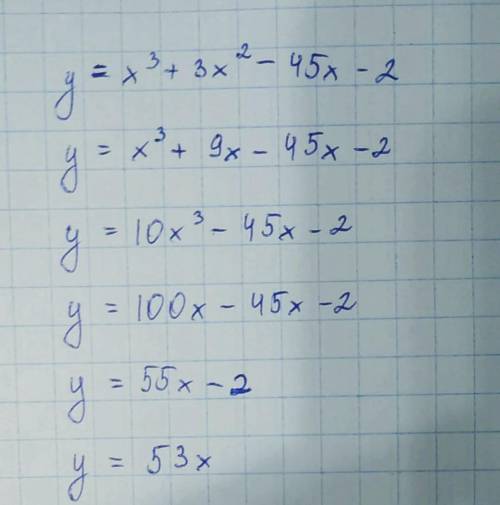 y = x³ + 3x² - 45x - 2
y = x³ + 9x - 45x - 2
y = 10x³ - 45x - 2
y = 100x - 45x - 2
y = 55x - 2
y = 53x